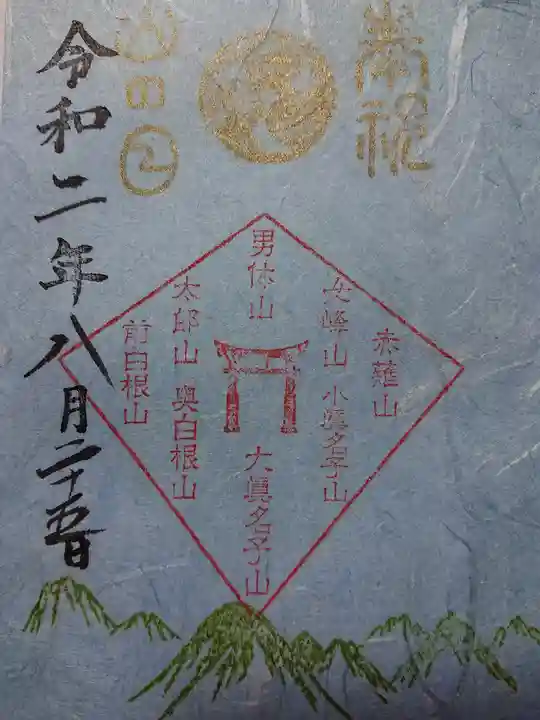 奉祝
山の日
男体山
女峰山
小眞名子山
赤薙山
太郎山
奥白根山
前白根山
大眞名子山
令和二年八月二十五日